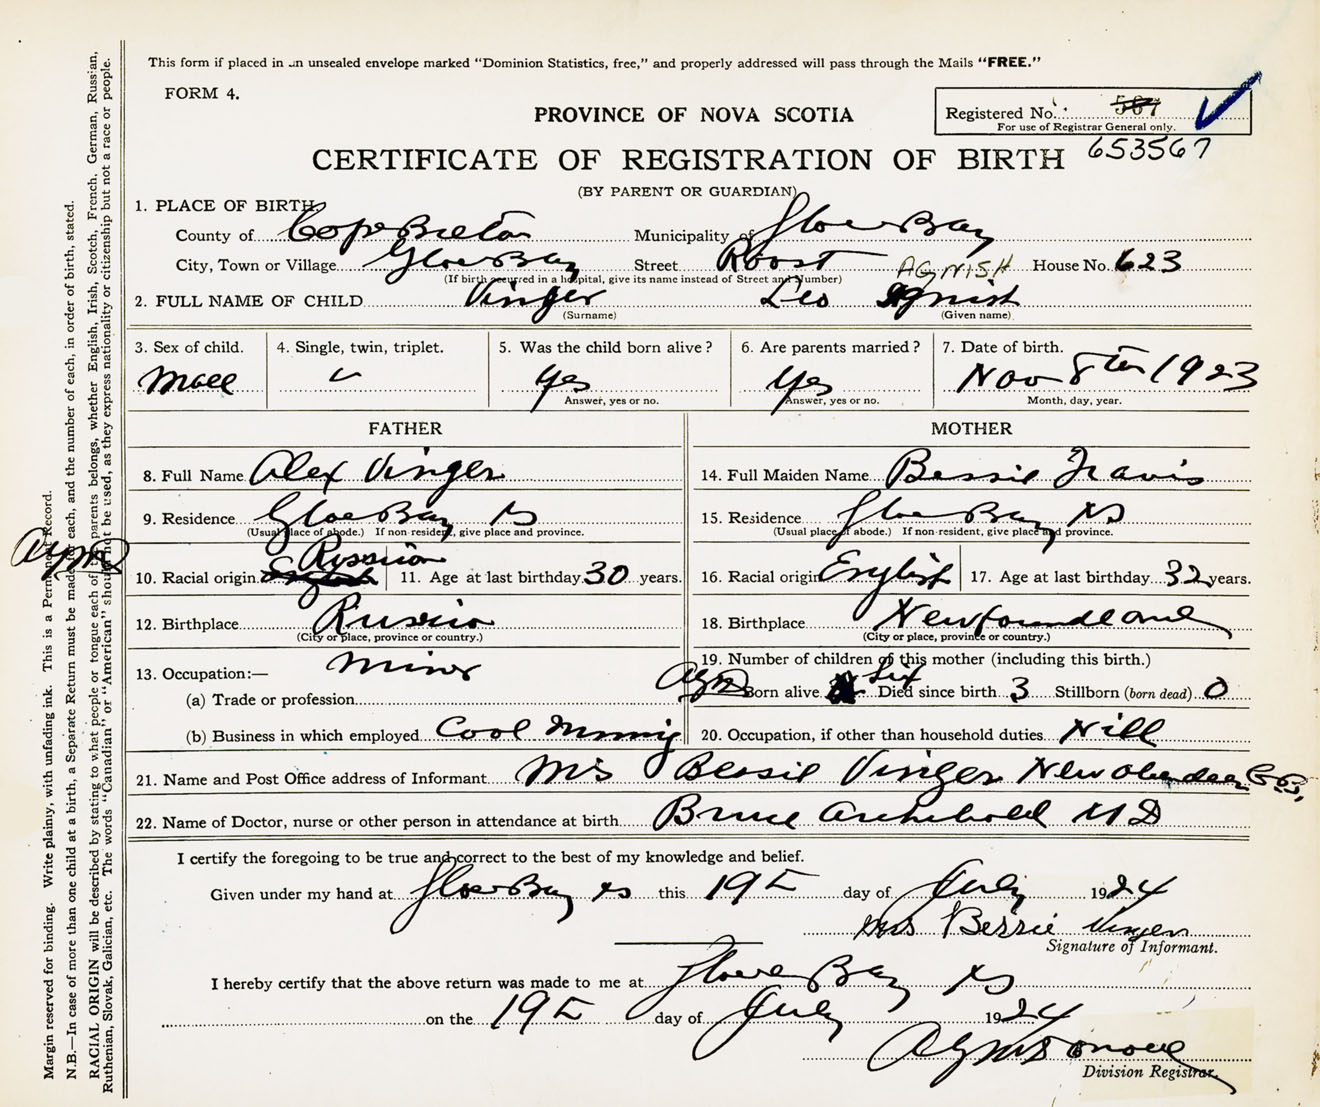 This form if placed in an unsealed envelope marked "Dominion Statistics, free," and properly addressed will pass through the Mails "FREE."
FORM 4.
PROVINCE OF NOVA SCOTIA
Registered No. 567
For use of Registrar General only.
653567
CERTIFICATE OF REGISTRATION OF BIRTH
(BY PARENT OR GUARDIAN)
1. PLACE OF BIRTH
County of Cape Breton Municipality of Glace Bay
City, Town or Village Glace Bay Street Roost House No. 623
(If birth occurred in a hospital, give its name instead of Street and Number)
AGNISH
2. FULL NAME OF CHILD Vinger Leo Agnish
(Surname) (Given name)
3. Sex of child. 4. Single, twin, triplet. 5. Was the child born alive? 6. Are parents married? 7. Date of birth.
Male Yes Yes Nov 8th 1923
Answer, yes or no. Answer, yes or no. Month, day, year.
FATHER MOTHER
8. Full Name Alex Vinger 14. Full Maiden Name Bessie Travis
9. Residence Glace Bay NS 15. Residence Glace Bay NS
(Usual place of abode.) If non-resident, give place and province. (Usual place of abode.) If non-resident, give place and province.
Russian
10. Racial origin English 11. Age at last birthday 30 years. 16. Racial origin English 17. Age at last birthday 32 years.
12. Birthplace Russia 18. Birthplace Newfoundland
(City or place, province or country.) (City or place, province or country.)
13. Occupation:— Miner 19. Number of children of this mother (including this birth.)
(a) Trade or profession Born alive Six Died since birth 3 Stillborn (born dead) 0
(b) Business in which employed Coal Mining 20. Occupation, if other than household duties Nill
21. Name and Post Office address of Informant Mrs Bessie Vinger New Aberdeen C.B.
22. Name of Doctor, nurse or other person in attendance at birth Bruce Archibald MD
I certify the foregoing to be true and correct to the best of my knowledge and belief.
Given under my hand at Glace Bay NS this 19th day of July 1924
Mrs Bessie Vinger
Signature of Informant.
I hereby certify that the above return was made to me at Glace Bay NS
on the 19th day of July 1924
Division Registrar.
Margin reserved for binding. Write plainly, with unfading ink. This is a Permanent Record.
N.B.—In case of more than one child at a birth, a Separate Return must be made for each, and the number of each, in order of birth, stated.
RACIAL ORIGIN will be described by stating to what people or tongue each of the parents belongs, whether English, Irish, Scotch, French, German, Russian,
Ruthenian, Slovak, Galician, etc. The words "Canadian" or "American" should not be used, as they express nationality or citizenship but not a race or people.